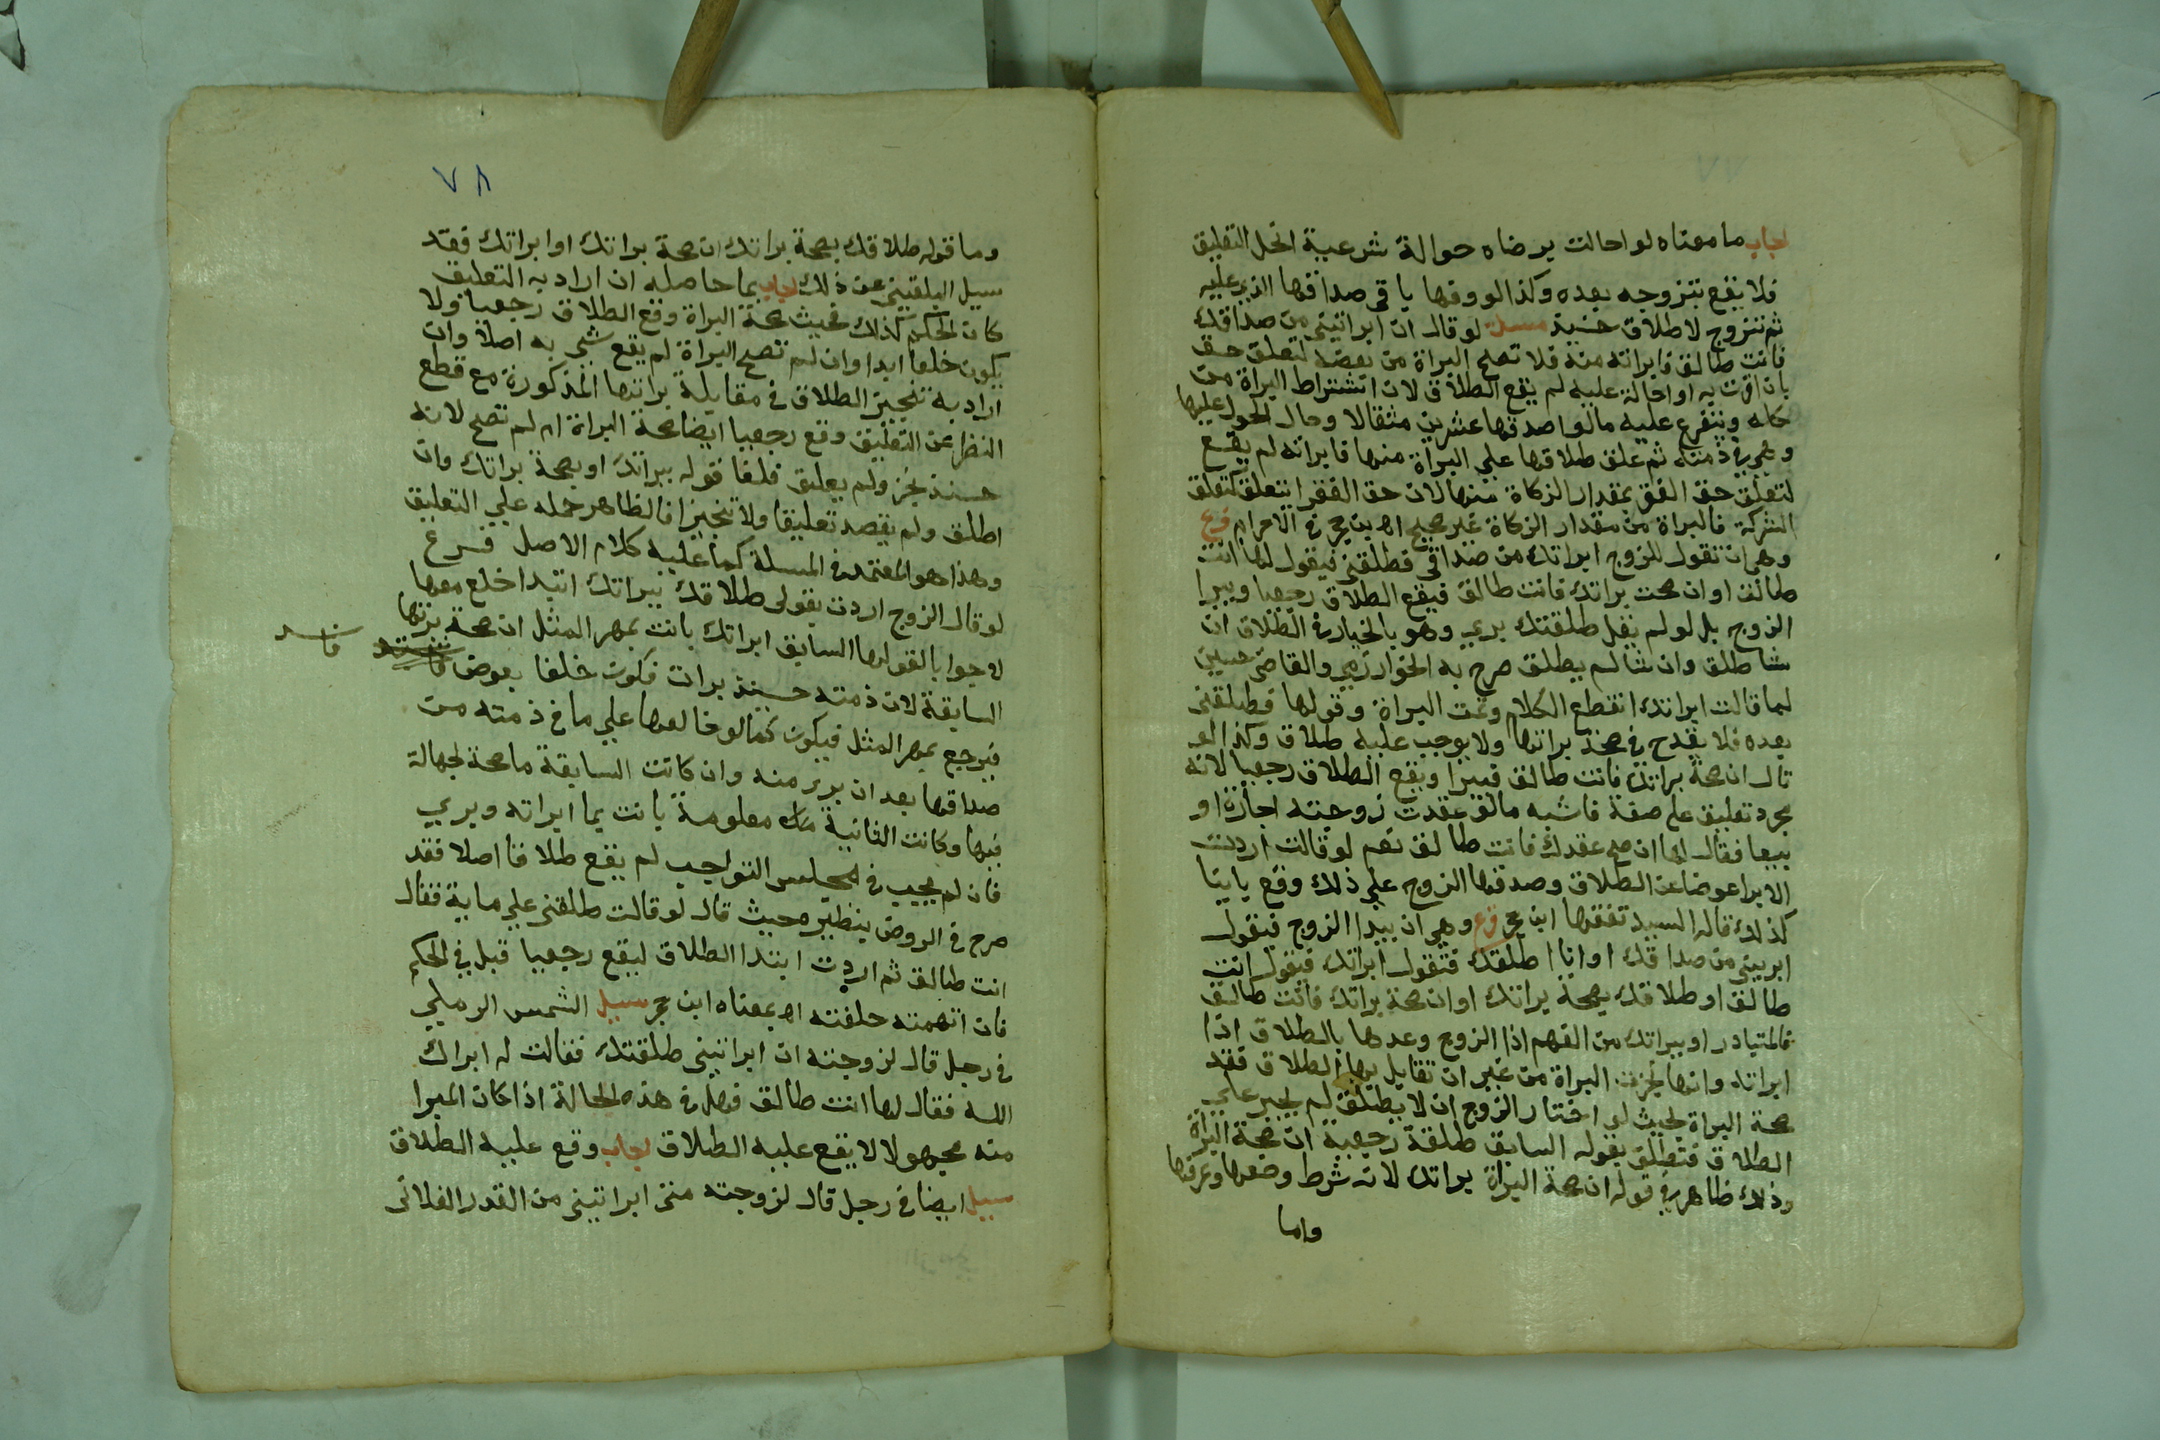 اجاب ما معناه لو احالت برضاه حوالة شرعية انحل التعليق
فلا يقع بتزوجه بعده وكذا لو وفها باقي صداقها الذي عليه
ثم تزوج لا طلاق حينيذ مسلة لو قال ان ابراتيني من صداقك
فانت طالق فابراته منه فلا تصح البراة من بعضه لتعلق حق
بان اقرت به او احالة عليه لم يقع الطلاق لان اشتراط البراة من
كله ويتفرع عليه ما لو اصدقها عشرين مثقالا وحال الحول عليها
وهي في ذمته ثم علق طلاقها علي البراة منها فابراته لم يقع
لتعلق حق الفقر بمقدار الزكاة منها لان حق الفقرا يتعلق كتعلق
الشركة فالبراة من مقدار الزكاة غير صحيح اه بن حجر في الاحرام فرع
وهي ان تقول للزوج ابراتك من صداقي فطلقني فيقول لها انت
طالق او ان صحت براتك فانت طالق فيقع الطلاق رجعيا ويبرا
الزوج بل لو لم يقل طلقتك بري وهو بالخيار في الطلاق ان
شا طلق وان شا لم يطلق صرح به الخوارزمي والقاضي حسين
لما قالت ابراتك انقطع الكلام وتمت البراة وقولها فطلقني
بعده فلا يقدح في صحة براتها ولا يوجب عليه طلاق وكذا لو
قال ان صحة براتك فانت طالق فيبرا ويقع الطلاق رجعيا لانه
مجرد تعليق علي صفة فاشبه ما لو عقدت زوجته اجارة او
بيعا فقال لها ان صح عقدك فانت طالق نعم لو قالت اردت
الابرا عوضا عن الطلاق وصدقها الزوج علي ذلك وقع باينا
كذلك قاله السيد تفقها ابن حجر فرع وهي ان يبدا الزوج فيقول
ابريني من صداقك او انا اطلقك فتقول ابراتك فيقول انت
طالق او طلاقك بصحة براتك او ان صحة براتك فانت طالق
فالمتبادر او ببراتك من الفهم اذا الزوج وعدها بالطلاق اذا
ابراته وانها نجزت البراة من غير ان تقابل بها الطلاق فقد
صحة البراة بحيث لو اختار الزوج ان لا يطلق لم يجبر علي
الطلاق فتطلق بقوله السابق طلقة رجعية ان صحة البراة
وذلك ظاهر في قوله ان صحة البراة براتك لانه شرط وضعها وعرفها
واما
٧٨
وما قوله طلاقك بصحة براتك ان صحة براتك او ابراتك فقد
سيل البلقيني عن ذلك اجاب بما حاصله ان اراد به التعليق
كان الحكم كذلك فحيث صحة البراة وقع الطلاق رجعيا ولا
يكون خلعا ابدا وان لم تصح البراة لم يقع شي به اصلا وان
اراد به تنجيز الطلاق في مقابلة براتها المذكورة مع قطع
النظر عن التعليق وقع رجعيا ايضا صحة البراة ام لم تصح لانه
حينيذ نجز ولم يعلق فلغا قوله ببراتك او بصحة براتك وان
اطلق ولم يقصد تعليقا ولا تنجيزا فالظاهر حمله علي التعليق
وهذا هو المعتمد في المسلة كما عليه كلام الاصل فرع
لو قال الزوج اردت بقولي طلاقك ببراتك ابتدا خلع معها
لا جوابا لقولها السابق ابراتك بانت بمهر المثل ان صحة برتها
السابقة لان ذمته حينيذ برات فيكون خلعا بعوض
فاسد
فيرجع بمهر المثل فيكون كما لو خالعها علي ما في ذمته من
صداقها بعد ان بري منه وان كانت السابقة ما صحة لجهالة
فيها وكانت الثانية معلومة بانت بما ابراته ويبري
فان لم يجيب في المجلس التواجب لم يقع طلاقا اصلا فقد
صرح في الروض بنظيره حيث قال لو قالت طلقني علي ماية فقال
انت طالق ثم اردت ابتدا الطلاق ليقع رجعيا قبل في الحكم
فان اتهمته حلفته اه بمعناه ابن حجر سيل الشمس الرملي
في رجل قال لزوجته ان ابراتيني طلقتك فقالت له ابراك
الله فقال لها انت طالق فهل في هذه الحالة اذا كان المبرا
منه مجهولا لا يقع عليه الطلاق اجاب وقع عليه الطلاق
سيل ايضا في رجل قال لزوجته متي ابراتيني من القدر الفلاني